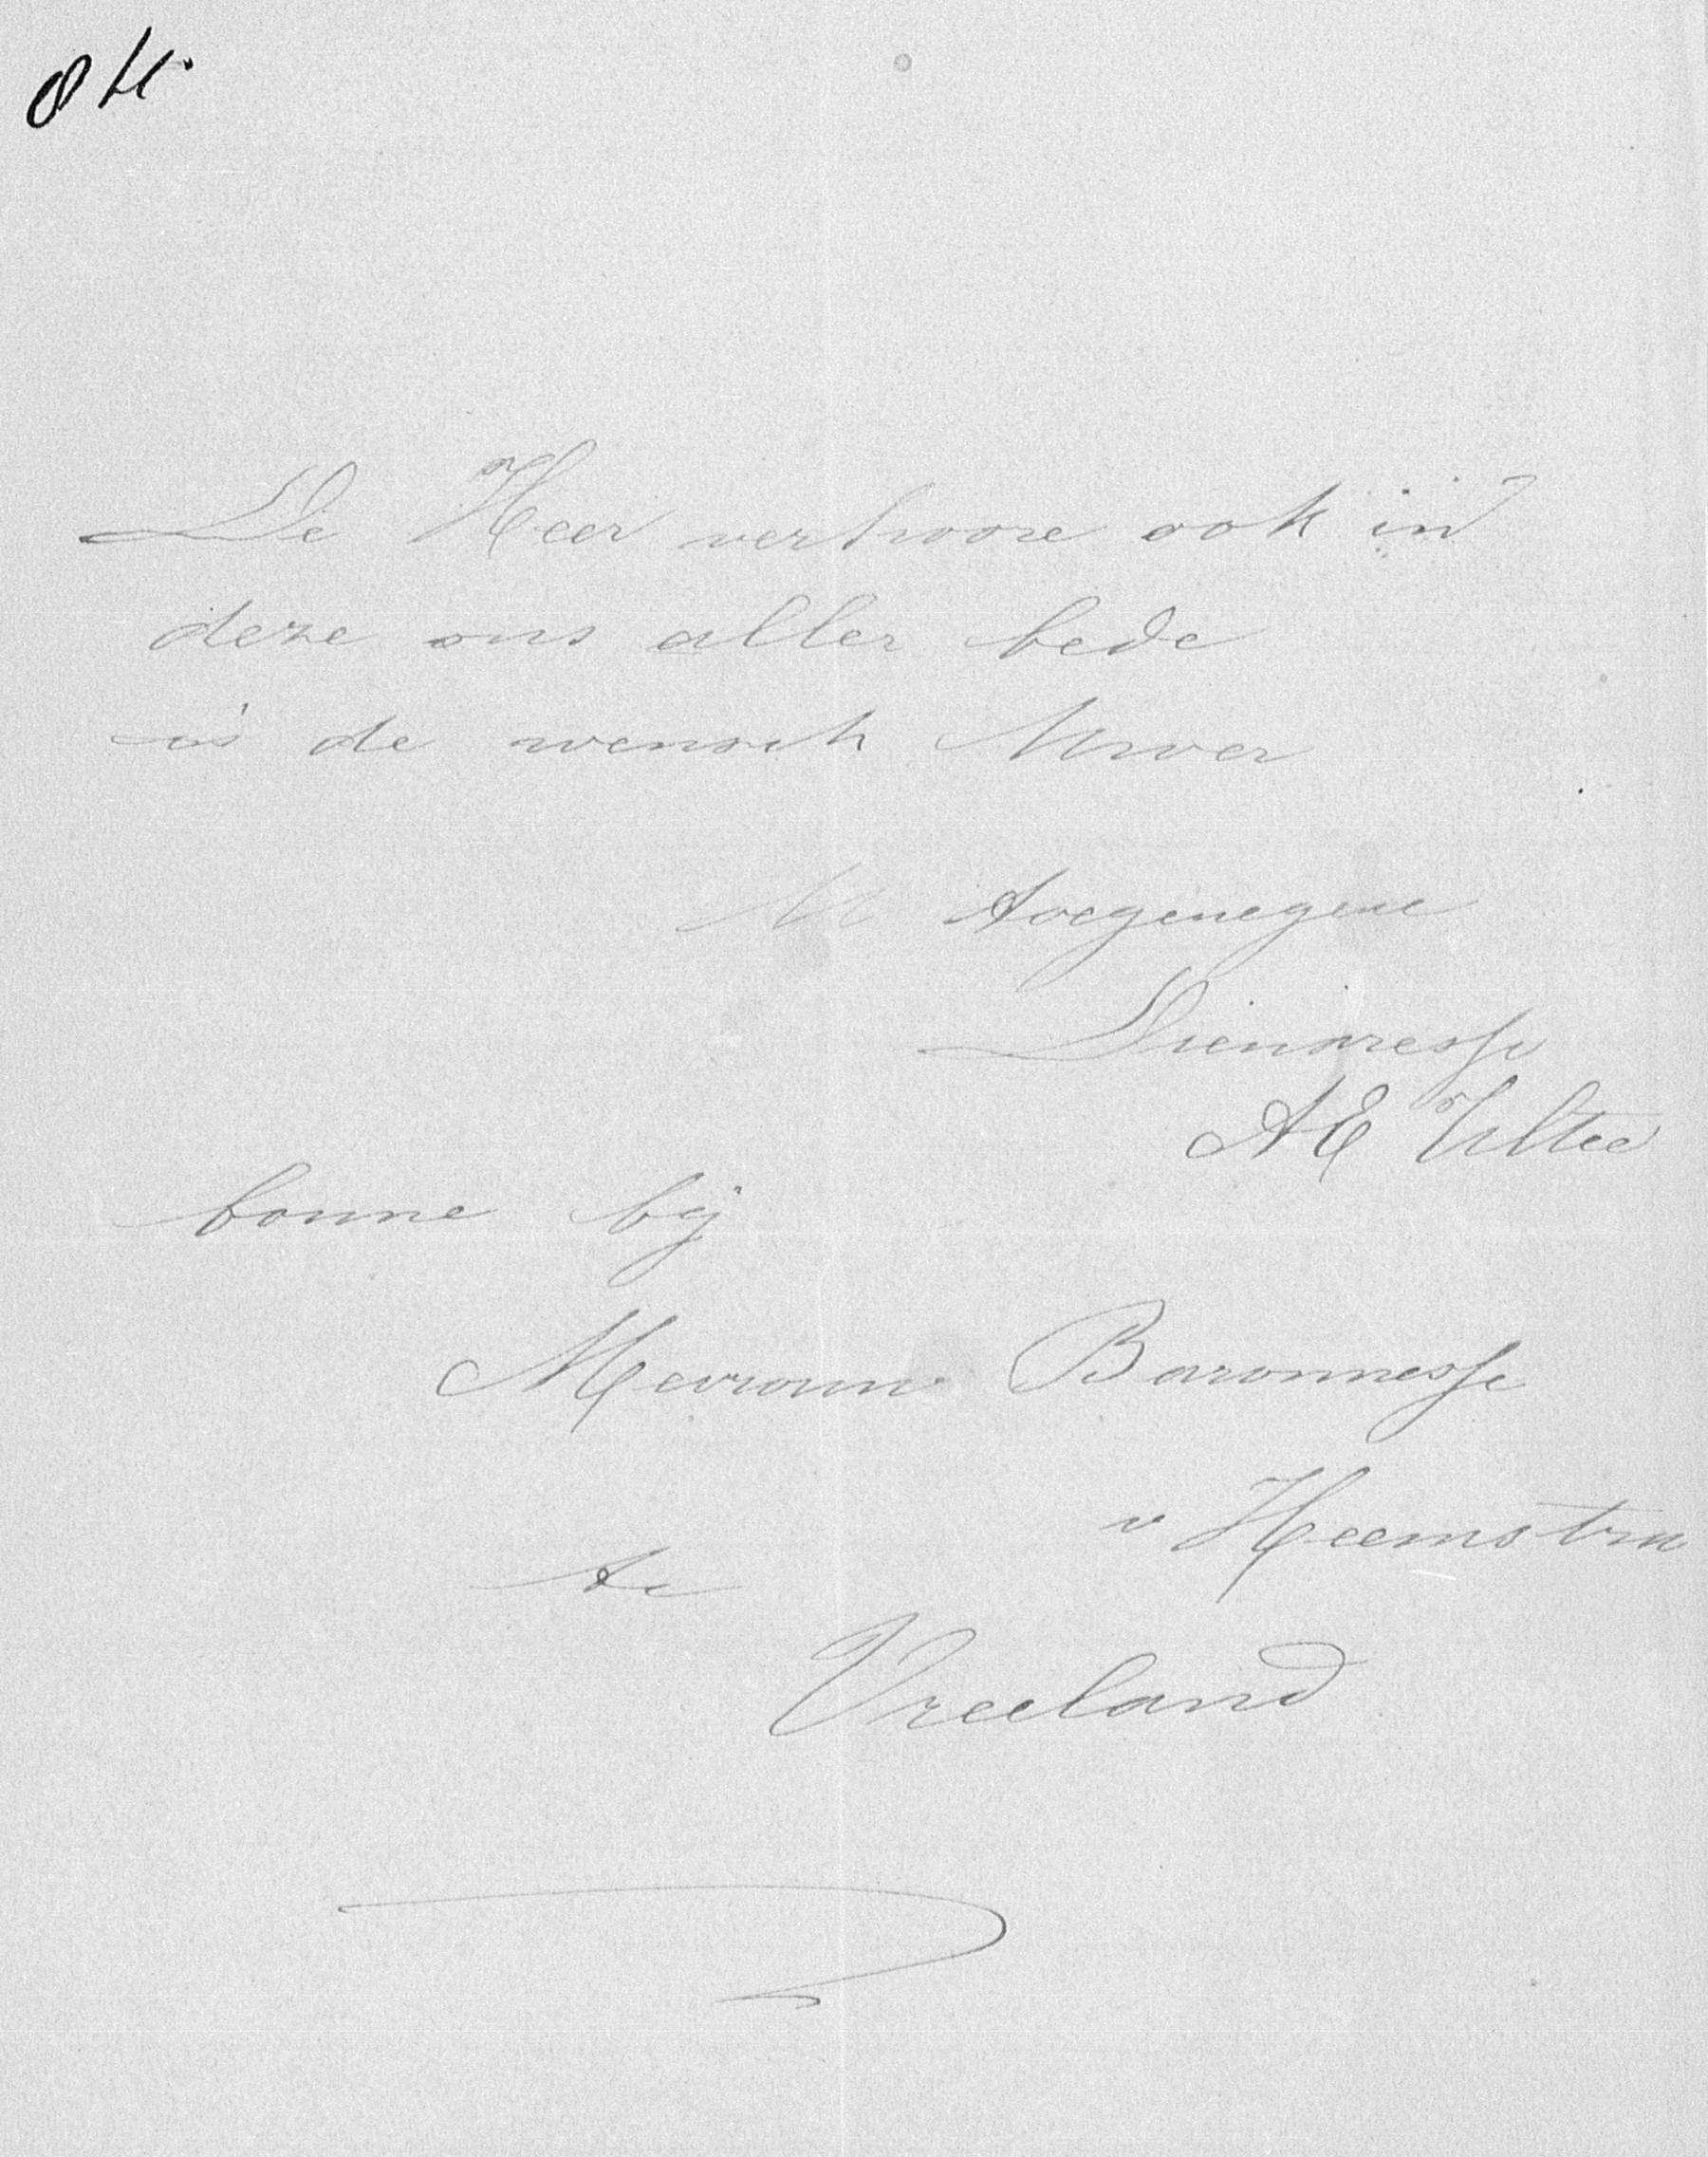 De Heer verhoore ook in
deze ons aller bede
is de wensch Uwer
U toegenegene
Dienaresse
A E Ultee
bonne bij
Mevrouw Baronnesse
v Heemstra
te
Vreeland